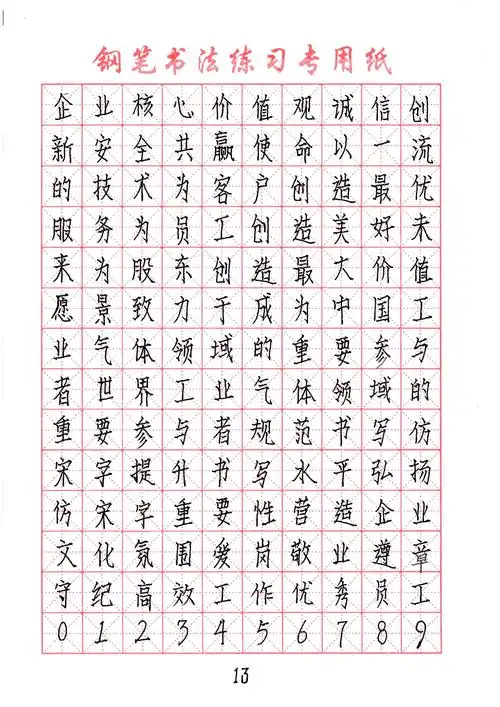 钢笔书法练习专用纸
企业核心价值观诚信创
新安全共赢使命以一流
的技术为客户创造最优
服务为员工创造美好未
来为股东创造最大价值
愿景致力于成为中国工
业气体领域的重要参与
者世界工业气体领域的
重要参与者规范书写仿
宋字提升书写水平弘扬
仿宋字重要性营造企业
文化氛围爱岗敬业遵章
守纪高效工作优秀员工
0123456789
13